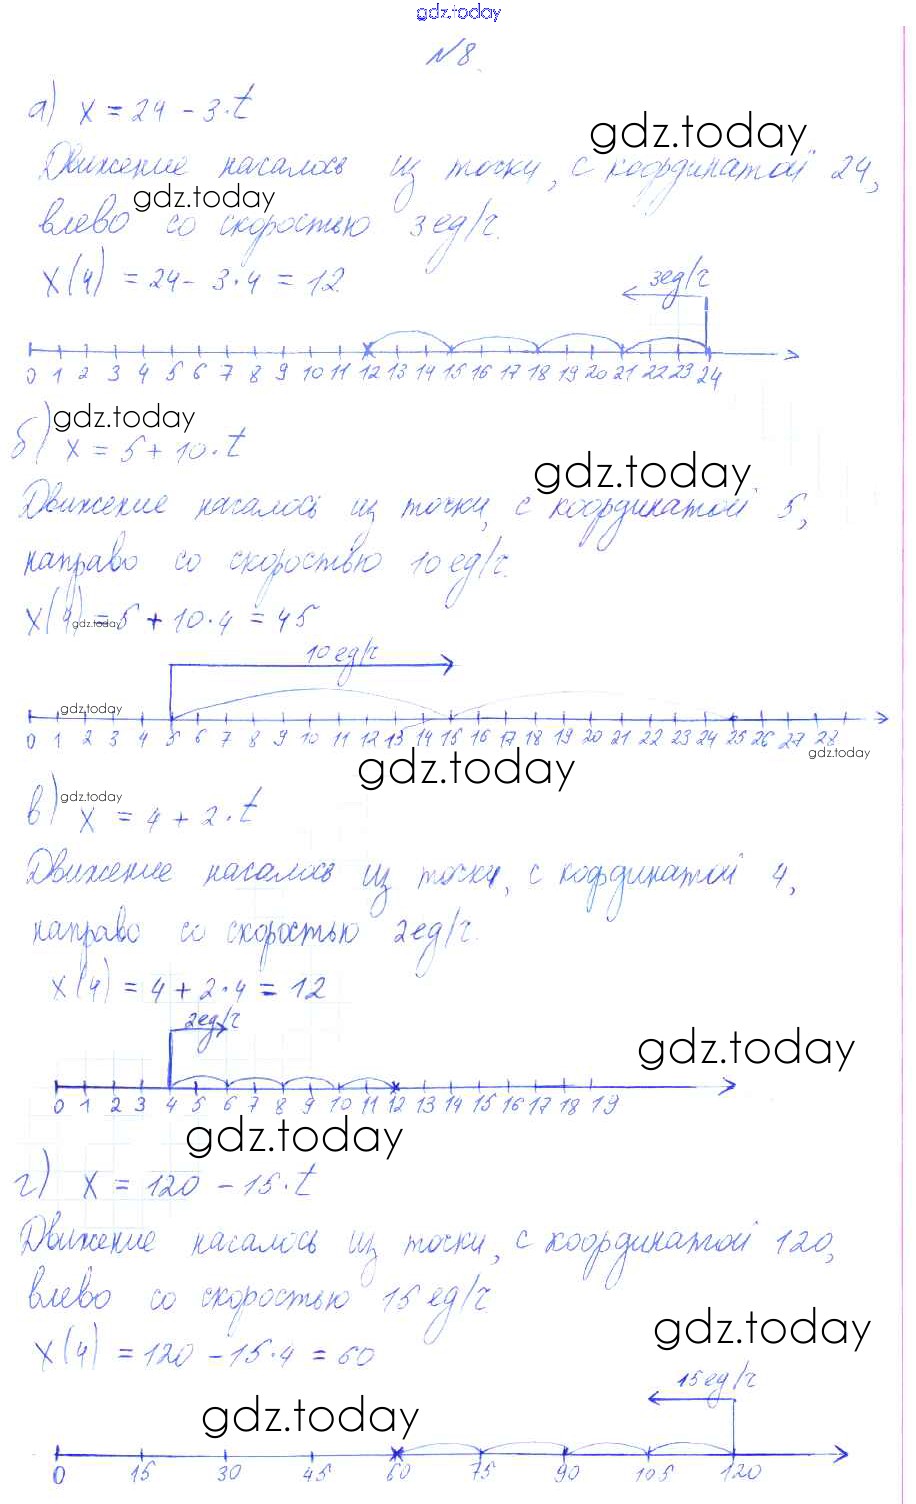 gdz.today
№8.
а) x = 24 - 3·t
gdz.today
Движение началось из точки, с координатой 24,
gdz.today
влево со скоростью 3ед/ч.
x(4) = 24 - 3·4 = 12.
3ед/ч
0 1 2 3 4 5 6 7 8 9 10 11 12 13 14 15 16 17 18 19 20 21 22 23 24
gdz.today
б) x = 5 + 10·t
gdz.today
Движение началось из точки, с координатой 5,
направо со скоростью 10ед/ч.
x(4) = 5 + 10·4 = 45
gdz.today
10ед/ч
gdz.today
0 1 2 3 4 5 6 7 8 9 10 11 12 13 14 15 16 17 18 19 20 21 22 23 24 25 26 27 28
gdz.today
gdz.today
gdz.today
в) x = 4 + 2·t
Движение началось из точки, с координатой 4,
направо со скоростью 2ед/ч.
x(4) = 4 + 2·4 = 12
2ед/ч
gdz.today
0 1 2 3 4 5 6 7 8 9 10 11 12 13 14 15 16 17 18 19
gdz.today
г) x = 120 - 15·t
Движение началось из точки, с координатой 120,
влево со скоростью 15 ед/ч.
gdz.today
x(4) = 120 - 15·4 = 60
15ед/ч
gdz.today
0 15 30 45 60 75 90 105 120